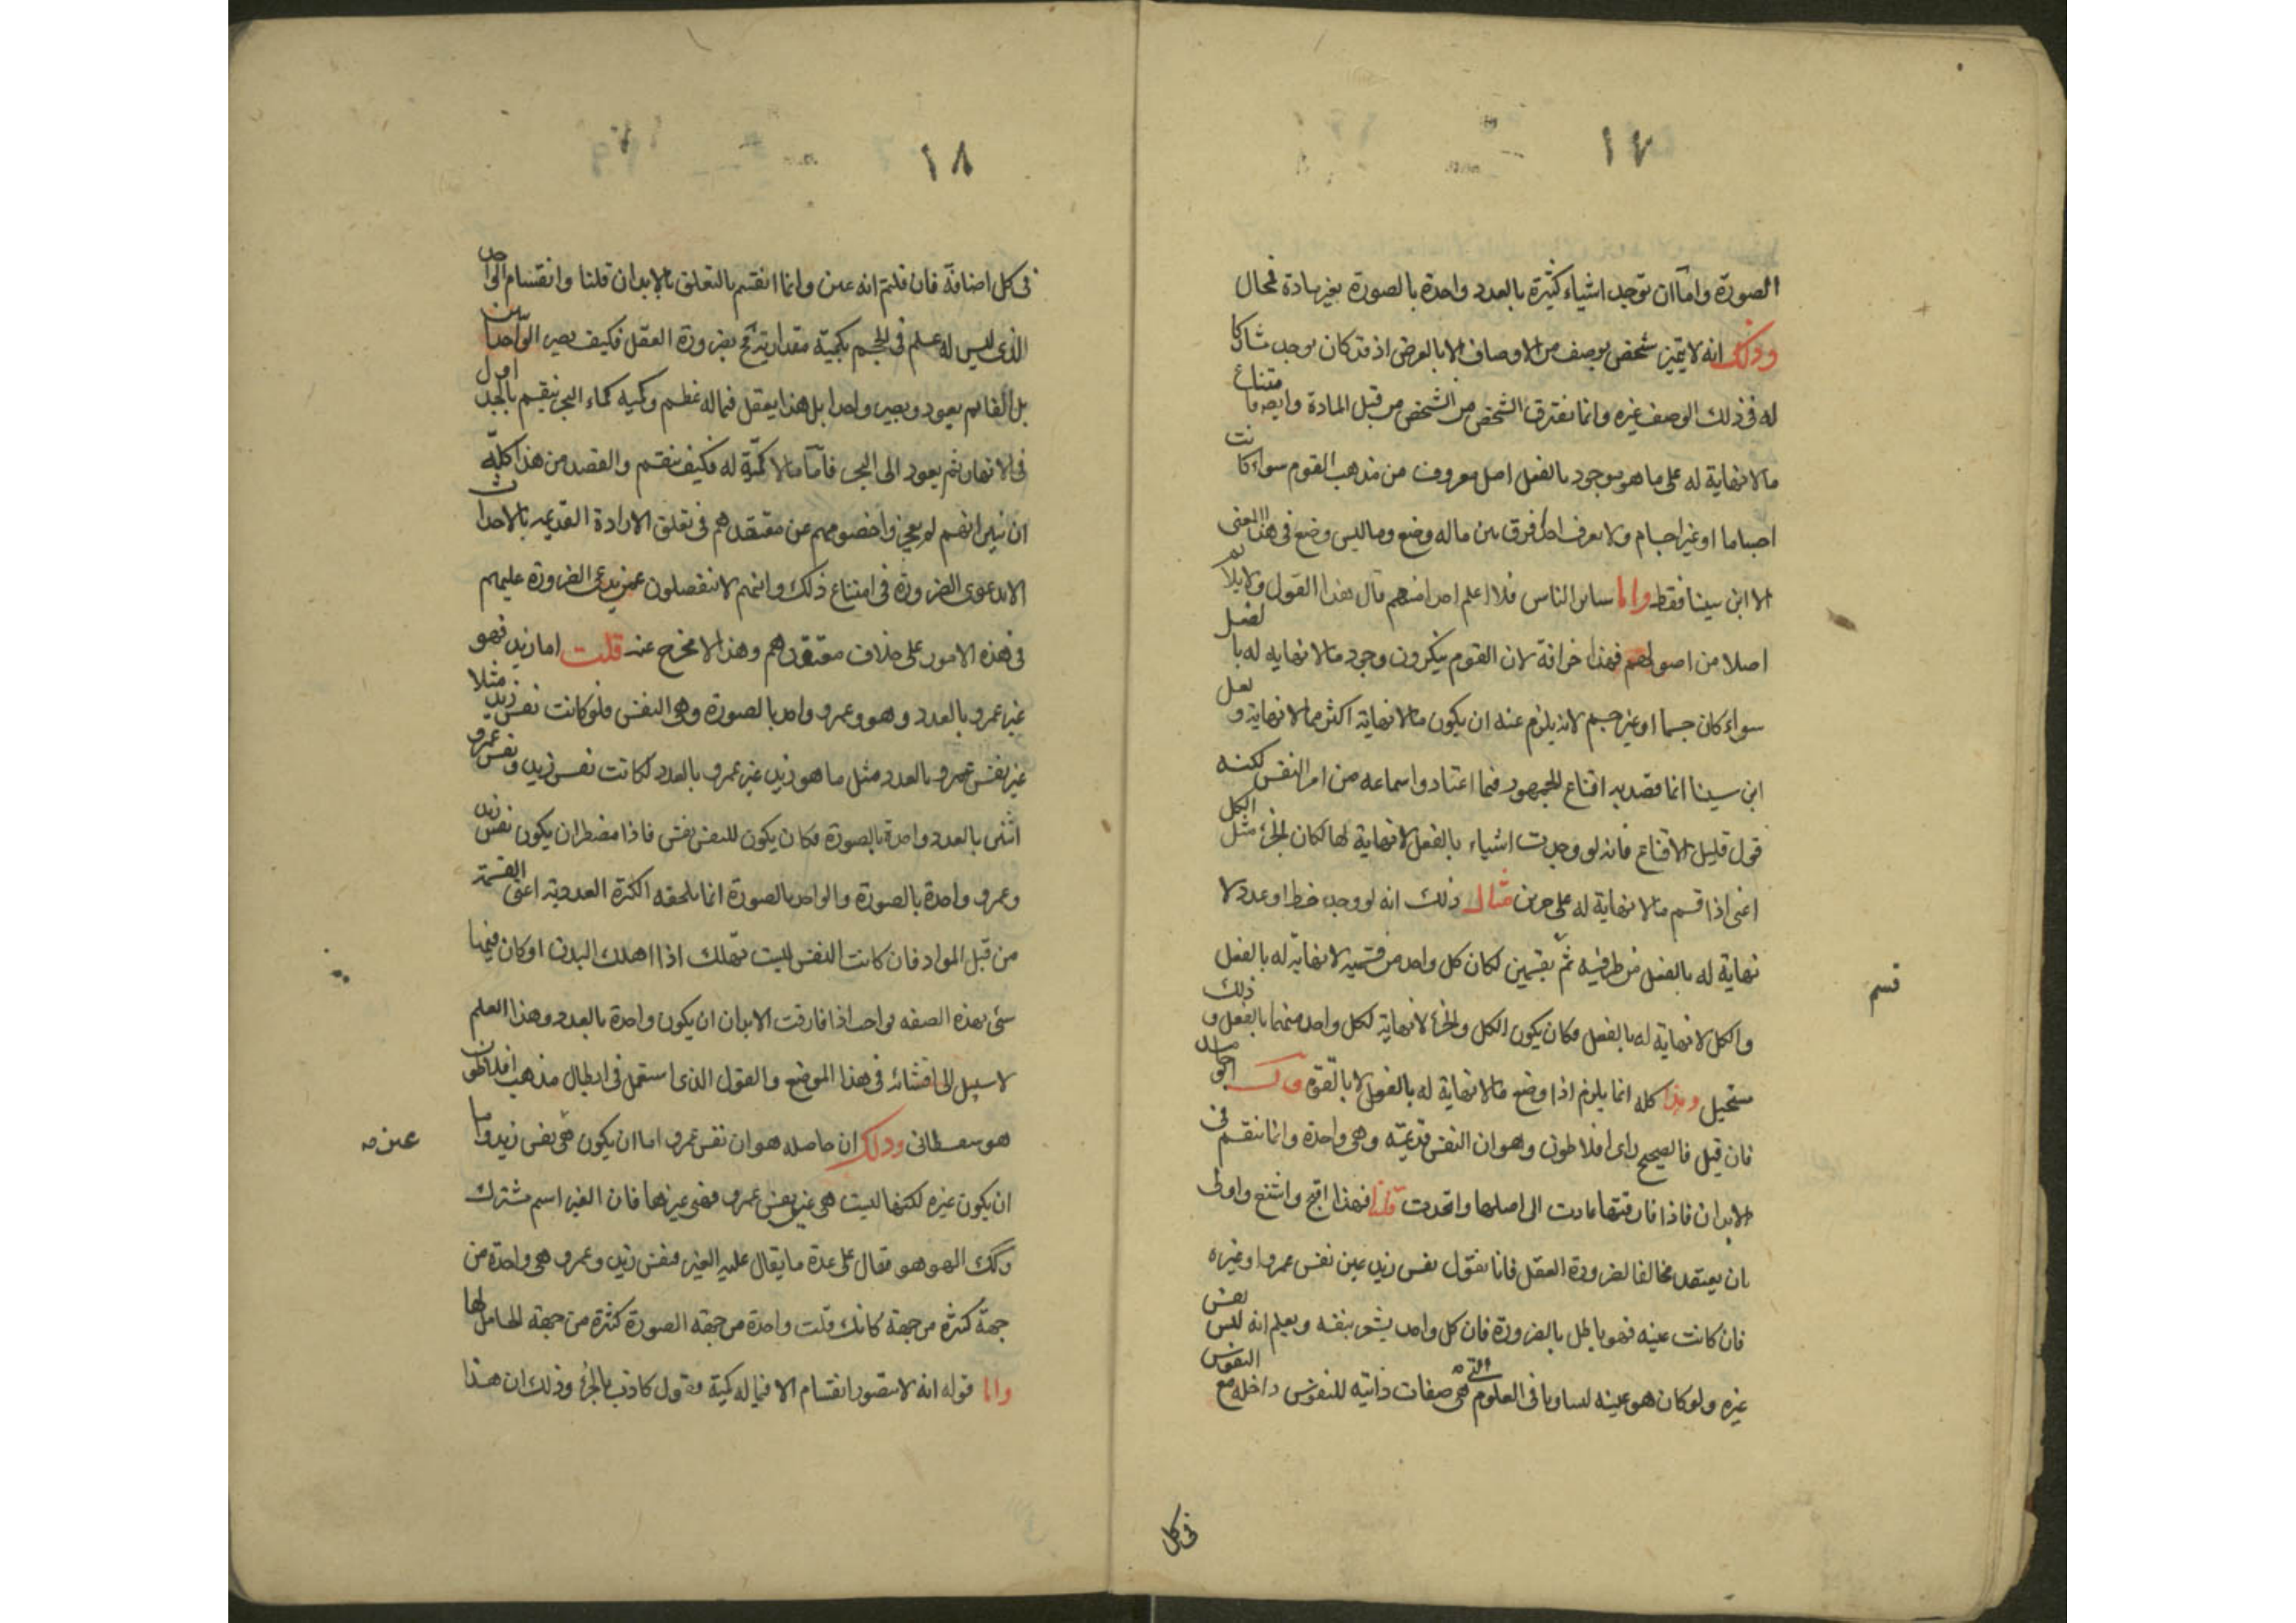 ١٧
الصورة واما ان توجد اشياء كثيرة بالعدد واحدة بالصورة بغير مادة فمحال
وذلك انه لا يتميز شخص بوصف من الاوصاف الا بالعرض اذ قد كان يوجد مشاركا
له فى ذلك الوصف غيره وانما يفترق الشخص من الشخص من قبل المادة وايضا امتناع
ما لا نهاية له على ما هو موجود بالفعل اصل معروف من مذهب القوم سواء كانت
اجساما او غير اجسام ولا نعرف احدا فرق بين ما له وضع وما ليس وضع فى هذا المعنى
الا ابن سينا فقط واما سائر الناس فلا اعلم احدا منهم قال هذا القول ولا يلائم
اصلا من اصولهم فهذا خرافة لان القوم ينكرون وجود ما لا نهايه له بالفعل
سواء كان جسما او غير جسم لانه يلزم عنه ان يكون ما لا نهاية اكثر مما لا نهاية ولعل
ابن سينا انما قصد به اقناع الجمهور فيما اعتادوا سماعه من امر النفس لكنه
قول قليل الاقناع فانه لو وجدت اشياء بالفعل لا نهاية لها لكان الجزء مثل الكل
اعنى اذا قسم ما لا نهاية له على جزئين مثال ذلك انه لو وجد خط او عدد لا
نهاية له بالفعل من طرفيه ثم بقسمين لكان كل واحد من قسميه لا نهاية له بالفعل
قسم
والكل لا نهاية له بالفعل فكان يكون الكل والجزء لا نهاية لكل واحد منهما بالفعل وذلك
مستحيل وهذا كله انما يلزم اذا وضع ما لا نهاية له بالفعل لا بالقوة قال ابو حامد
فان قيل فالصحيح راى افلاطون وهو ان النفس قديمة وهى واحدة وانما تنقسم فى
الابدان فاذا فارقتها عادت الى اصلها واتحدت قلنا فهذا اقبح واشنع واولى
بان يعتقد مخالفا لضرورة العقل فانا نقول نفس زيد عين نفس عمرو او غيره
فان كانت عينه فهو باطل بالضرورة فان كل واحد يشعر بنفسه ويعلم انه ليس نفس
غيره ولو كان هو عينه لتساويا فى العلوم التى هى صفات ذاتيه للنفوس داخله مع النفوس
فى كل
١٨
فى كل اضافة فان قلتم انه عين وانما انقسم بالتعلق بالابدان قلنا وانقسام الواحد
الذى ليس له عظم فى الحجم بكمية مقدارية محال بضرورة العقل فكيف يصير الواحد اثنين
بل الفا ثم يعود ويصير واحدا بل هذا يعقل فيما له عظم وكميه كماء البحر ينقسم بالجداول
فى الانهار ثم يعود الى البحر فاما ما لا كمية له فكيف ينقسم والقصد من هذا كله
ان نبين انهم لم يعجزوا خصومهم عن معتقدهم فى تعلق الارادة القديمه بالاحداث
الا بدعوى الضرورة فى امتناع ذلك وانهم لا ينفصلون عمن يدعى الضرورة عليهم
فى هذه الامور على خلاف معتقدهم وهذا لا مخرج عنه قلت اما زيد فهو
غير عمرو بالعدد وهو وعمرو واحد بالصورة وهى النفس فلو كانت نفس زيد مثلا
غير نفس عمرو بالعدد مثل ما هو زيد غير عمرو بالعدد لكانت نفس زيد ونفس عمرو
اثنين بالعدد واحدة بالصورة فكان يكون للنفس نفس فاذا مضطر ان يكون نفس زيد
وعمرو واحدة بالصورة والواحد بالصورة انما تلحقه الكثرة العددية اعنى القسمة
من قبل المواد فان كانت النفس ليست تهلك اذا اهلك البدن او كان فيها
شئ بهذه الصفه فواجب اذا فارقت الابدان ان يكون واحدة بالعدد وهذا العلم
لا سبيل الى افشائه فى هذا الموضع والقول الذى استعمل فى ابطال مذهب افلاطون
هو سفسطانى وذلك ان حاصله هو ان نفس عمرو اما ان يكون هى نفس زيد واما
عين صه
ان يكون غيره لكنها ليست هى غير نفس عمرو فهى غيرها فان الغير اسم مشترك
وكك الهو هو يقال على عدة ما يقال عليه الغير فنفس زيد وعمرو هى واحدة من
جهة كثيرة من جهة كانك قلت واحدة من جهة الصورة كثيرة من جهة الحامل لها
واما قوله انه لا يتصور انقسام الا فيما له كمية فقول كاذب بالجزء وذلك ان هذا